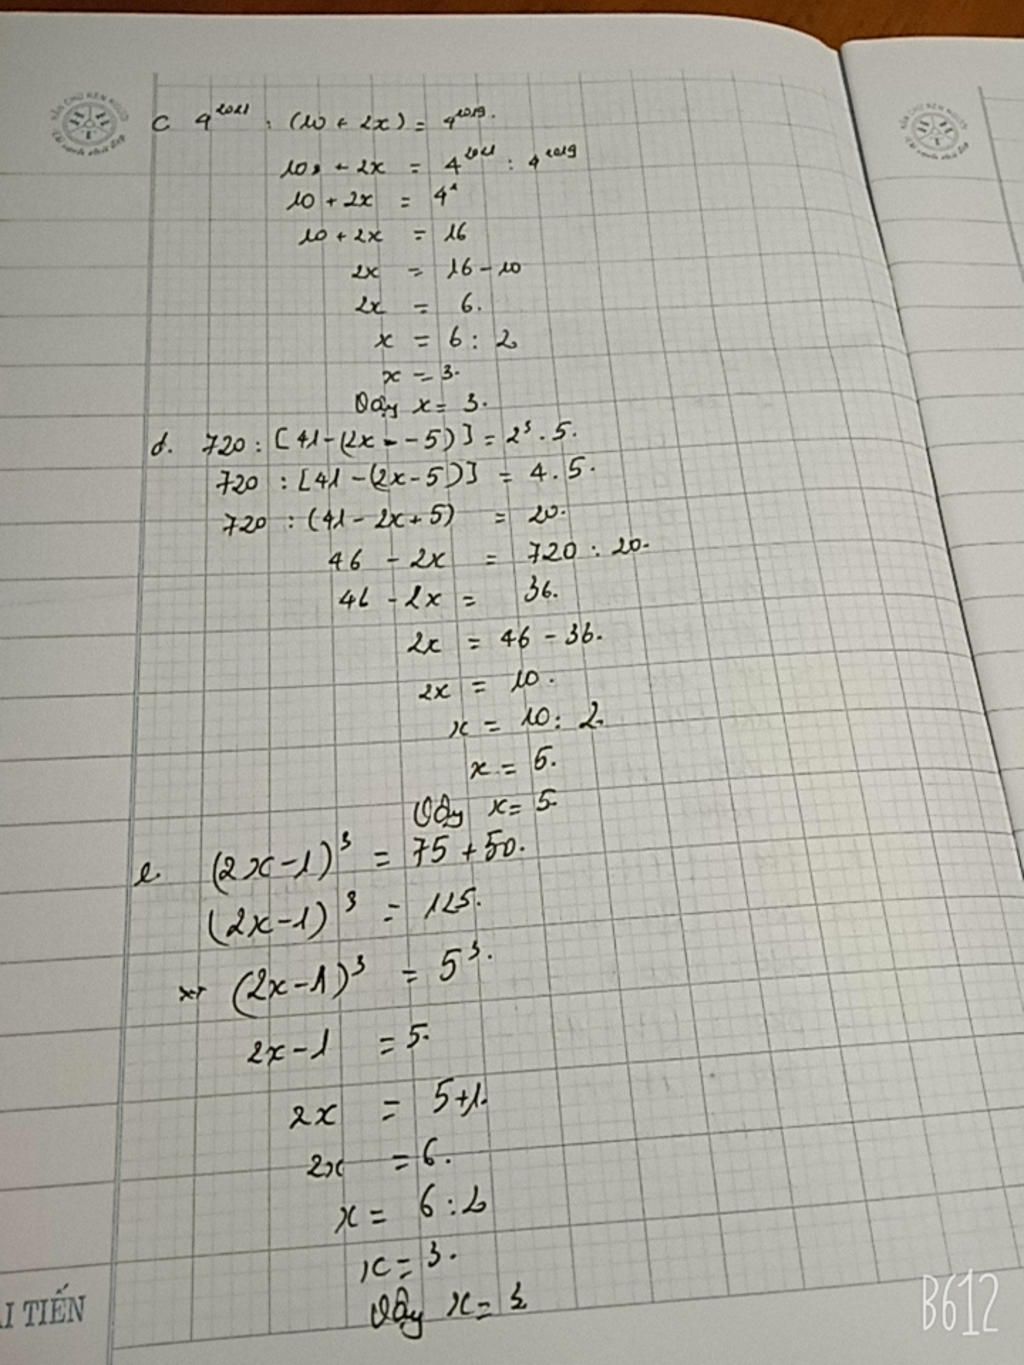 c 4^2021 : (10 + 2x) = 4^2019.
10 + 2x = 4^2021 : 4^2019
10 + 2x = 4^2
10 + 2x = 16
2x = 16 - 10
2x = 6.
x = 6 : 2
x = 3.
Vậy x = 3.
d. 720 : [41 - (2x - - 5)] = 2^3 . 5.
720 : [41 - (2x - 5)] = 4 . 5.
720 : (41 - 2x + 5) = 20.
46 - 2x = 720 : 20.
46 - 2x = 36.
2x = 46 - 36.
2x = 10.
x = 10 : 2.
x = 5.
Vậy x = 5.
e. (2x - 1)^3 = 75 + 50.
(2x - 1)^3 = 125.
(2x - 1)^3 = 5^3.
2x - 1 = 5.
2x = 5 + 1.
2x = 6.
x = 6 : 2
x = 3.
Vậy x = 3
I TIẾN
B612